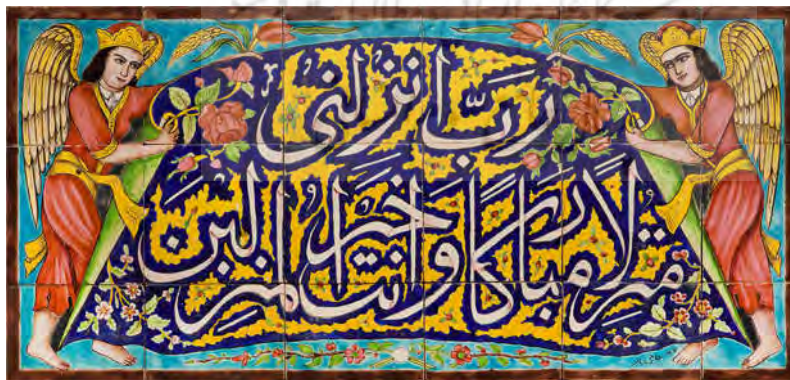 ربّ انزلنی
منزلا مبارکا وانت خیر المنزلین